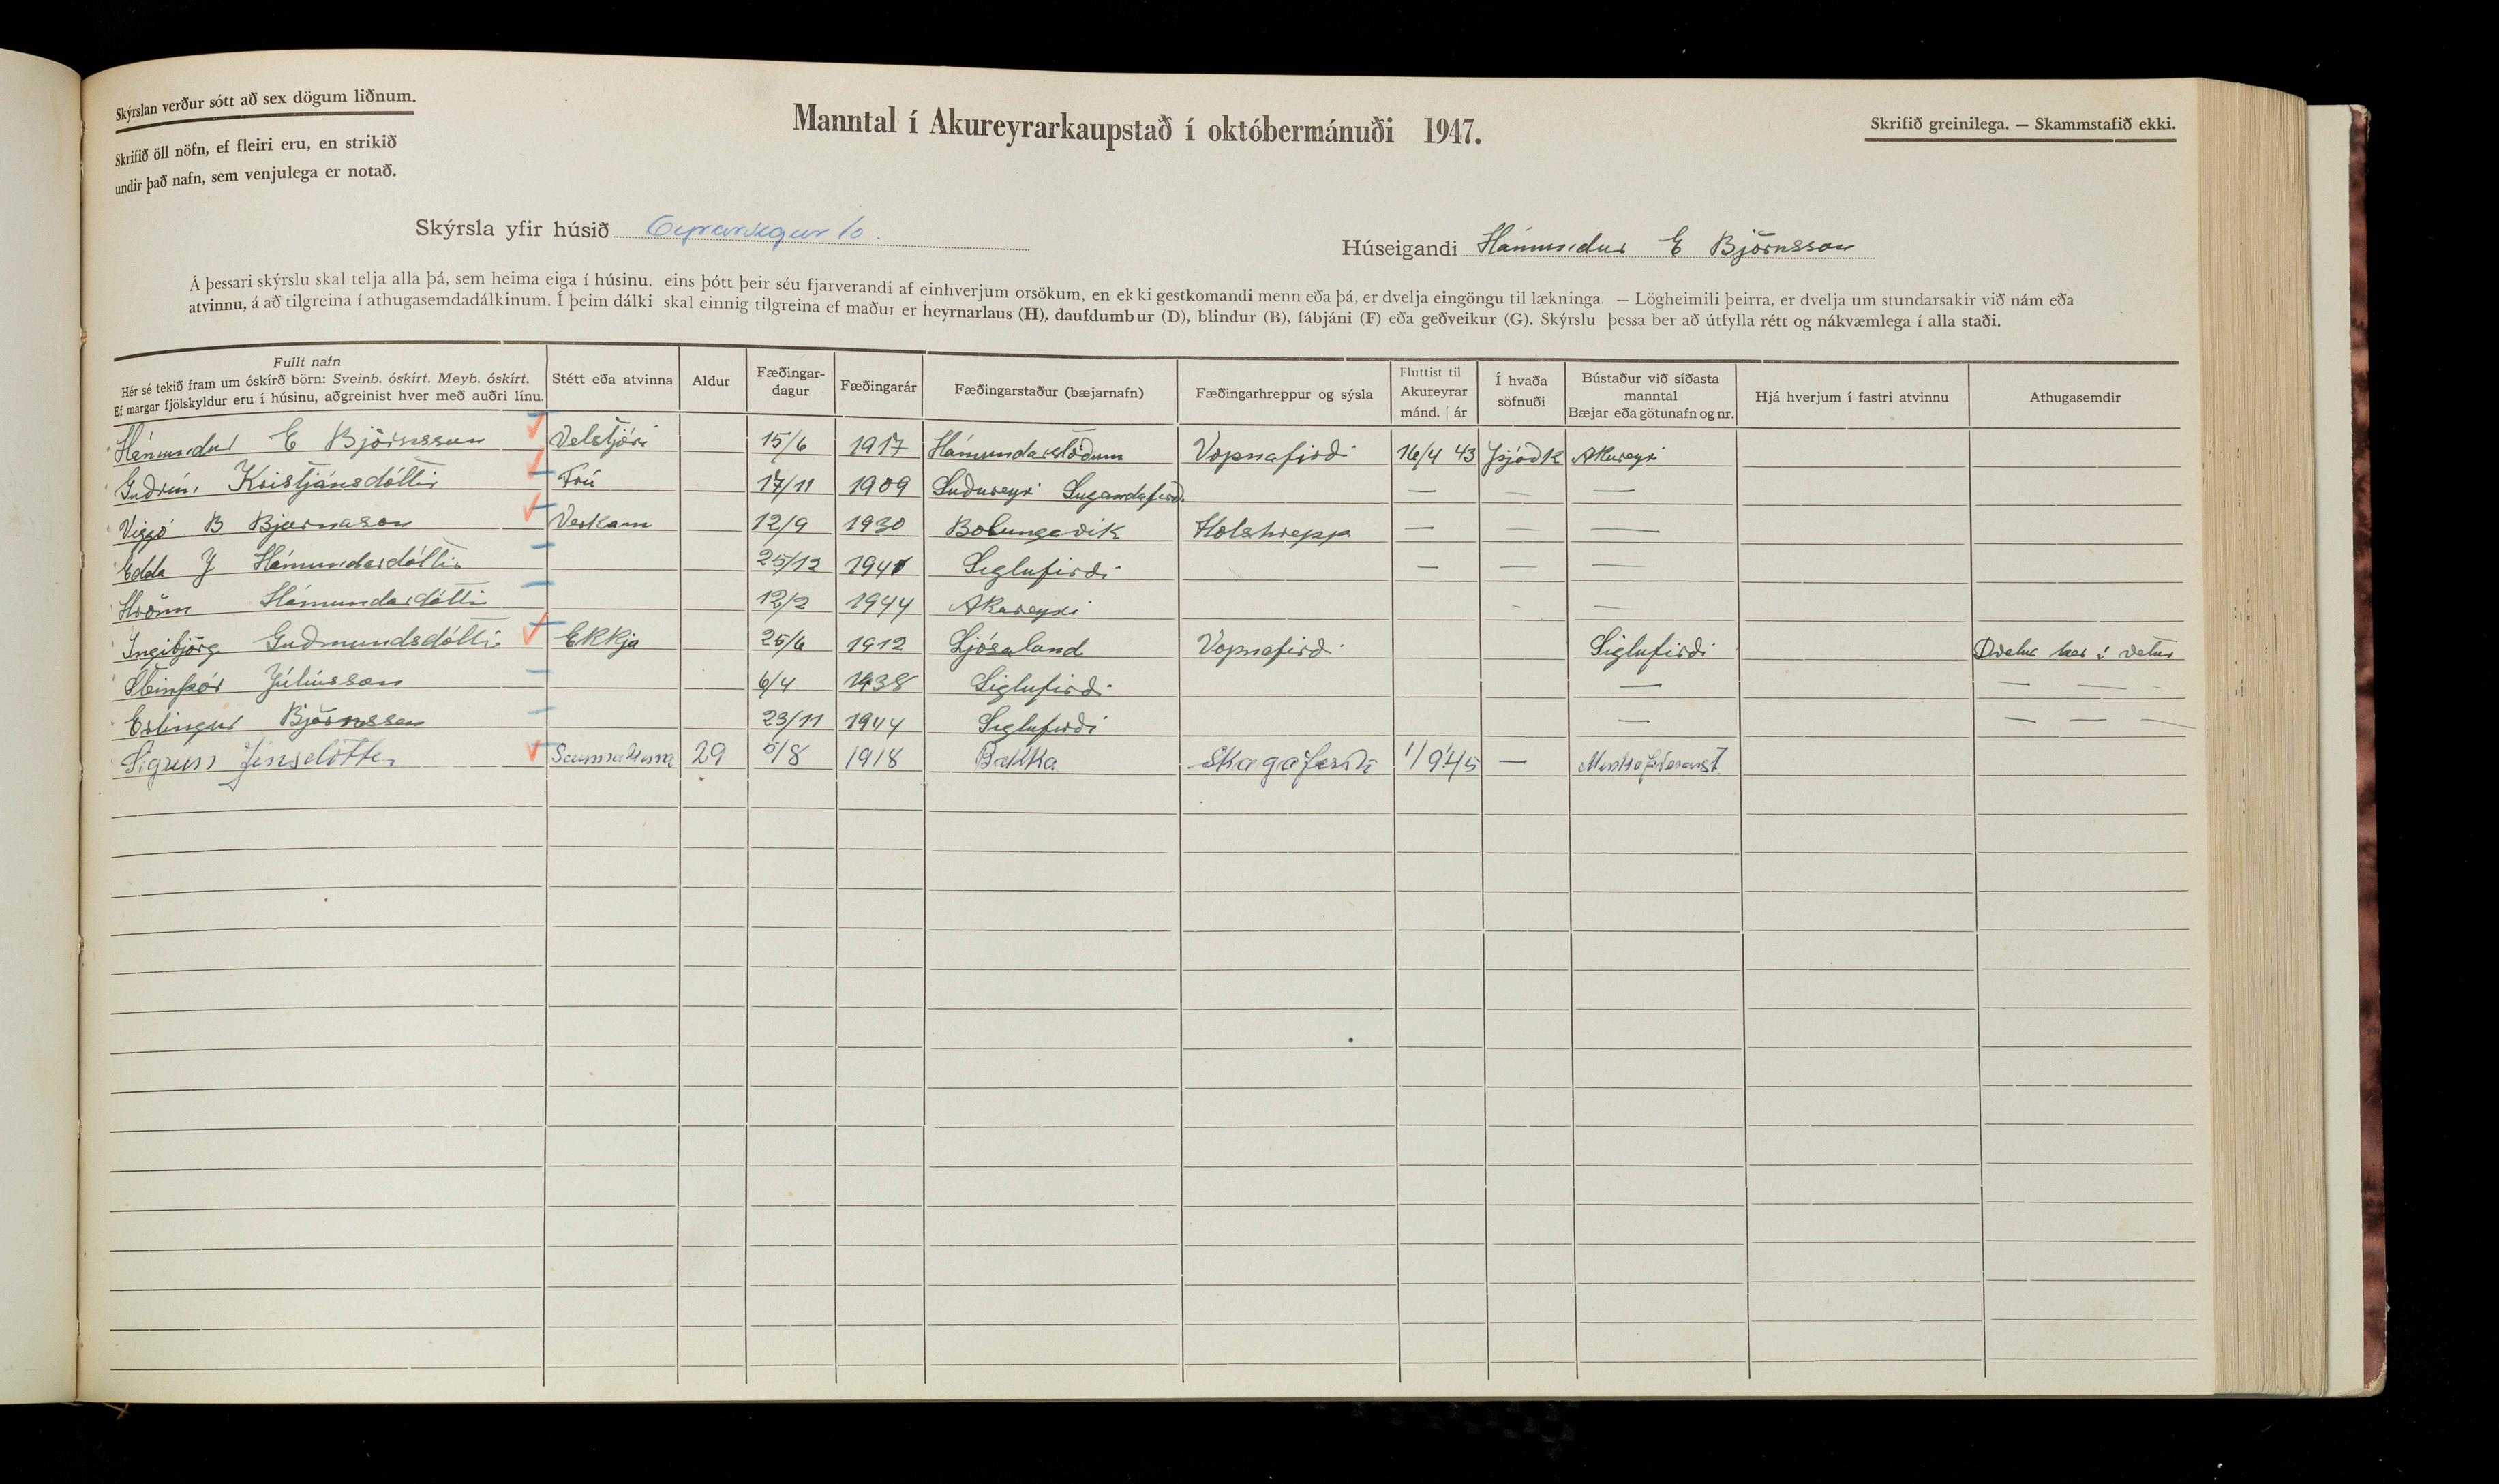 Skýrslan verður sótt að sex dögum liðnum.
Skrifið öll nöfn, ef fleiri eru, en strikið
undir það nafn, sem venjulega er notað.
Manntal í Akureyrarkaupstað í októbermánuði 1947.
Skrifið greinilega. — Skammstafið ekki.
Skýrsla yfir húsið Eyrarvegur 10.
Húseigandi Hámundur E Björnsson
Á þessari skýrslu skal telja alla þá, sem heima eiga í húsinu, eins þótt þeir séu fjarverandi af einhverjum orsökum, en ekki gestkomandi menn eða þá, er dvelja eingöngu til lækninga. — Lögheimili þeirra, er dvelja um stundarsakir við nám eða
atvinnu, á að tilgreina í athugasemdadálkinum. Í þeim dálki skal einnig tilgreina ef maður er heyrnarlaus (H), daufdumbur (D), blindur (B), fábjáni (F) eða geðveikur (G). Skýrslu þessa ber að útfylla rétt og nákvæmlega í alla staði.
Fullt nafn
Hér sé tekið fram um óskírð börn: Sveinb. óskírt. Meyb. óskírt.
Ef margar fjölskyldur eru í húsinu, aðgreinist hver með auðri línu.
Stétt eða atvinna
Aldur
Fæðingar-
dagur
Fæðingarár
Fæðingarstaður (bæjarnafn)
Fæðingarhreppur og sýsla
Fluttist til
Akureyrar
mánd. | ár
Í hvaða
söfnuði
Bústaður við síðasta
manntal
Bæjar eða götunafn og nr.
Hjá hverjum í fastri atvinnu
Athugasemdir
Hámundur E Björnsson Velstjóri 15/6 1917 Hámundarstöðum Vopnafirði 16/4 43 Þjóðk Akureyri
Guðrún Kristjánsdóttir Frú 17/11 1909 Suðureyri Sugandafirð. — — —
Viggó B Bjarnason Verkam 12/9 1930 Bolungavik Holshrepp — — —
Edda J Hámundardóttir 25/12 1941 Siglufirði — — —
Hrönn Hámundardóttir 12/2 1944 Akureyri — —
Ingibjörg Guðmundsdóttir Ekkja 25/6 1912 Ljósaland Vopnafirði Siglufirði Dvelur her í vetur
Steinþór Júlíusson 6/4 1938 Siglufirði — — — —
Erlingur Björnsson 23/11 1944 Siglufirði — — — —
Sigrún Jensdóttir Saumakona 29 5/8 1918 Bakka Skagafirði 1/9 45 —